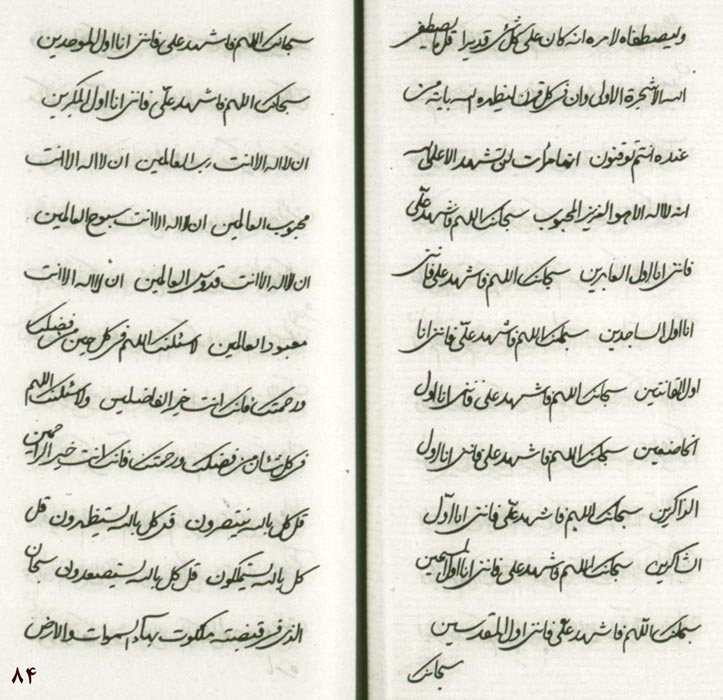 وليصطفاه لامره انه كان على كل شئ قديرا قل ما يصطفى
الله الاشجرة الاولى وان فى كل قرن ليظهره الله باية من
عنده انتم توقنون انها مرات لن تشهد الا على الله
انه لا اله الا هو العزيز المحبوب سبحانك اللهم فاشهد على
فاننى انا اول العابدين سبحانك اللهم فاشهد على فاننى
انا اول الساجدين سبحانك اللهم فاشهد على فاننى انا
اول القانتين سبحانك اللهم فاشهد على فاننى انا اول
الخاضعين سبحانك اللهم فاشهد على فاننى انا اول
الذاكرين سبحانك اللهم فاشهد على فاننى انا اول
الشاكرين سبحانك اللهم فاشهد على فاننى انا اول المسبحين
سبحانك اللهم فاشهد على فاننى اول المقدسين
سبحانك
سبحانك اللهم فاشهد على فاننى انا اول الموحدين
سبحانك اللهم فاشهد على فاننى انا اول المكبرين
ان لا اله الا انت رب العالمين ان لا اله الا انت
محبوب العالمين ان لا اله الا انت سبوح العالمين
ان لا اله الا انت قدوس العالمين ان لا اله الا انت
معبود العالمين لاسئلنك اللهم فى كل حين من فضلك
ورحمتك فانك انت خير الفاضلين ولاسئلنك اللهم
فى كل شان من فضلك ورحمتك فانك انت خير الراحمين
قل كل بالله ينتصرون قل كل بالله يستظهرون قل
كل بالله يستملكون قل كل بالله يستصعدون سبحان
الذى فى قبضته ملكوت بهاء السموات والارض
٨۴